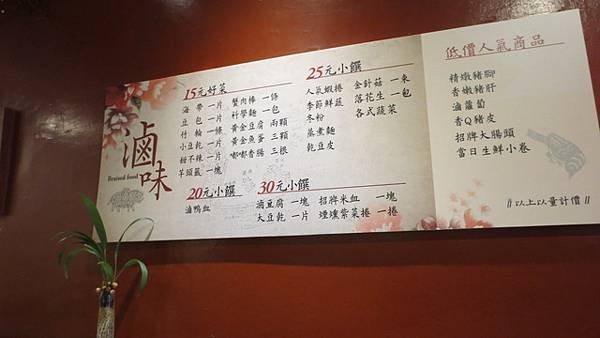 滷味
Braised food
15元好菜
海帶 一片
豆包 一片
竹輪 一條
小豆乾 一片
甜不辣 一片
芋頭簽 一塊
蟹肉棒 一條
科學麵 一包
黃金豆腐 兩顆
黃金魚蛋 三顆
嘟嘟香腸 三根
20元小饌
滷鴨血
25元小饌
人氣蝦捲
季節鮮蔬
冬粉
蒸煮麵
乾豆皮
金針菇 一束
落花生 一包
各式蔬菜
30元小饌
滷豆腐 一塊
大豆乾 一片
招牌米血 一塊
煙燻紫菜捲 一捲
低價人氣商品
精燉豬腳
香嫩豬肝
滷蘿蔔
香Q豬皮
招牌大腸頭
當日生鮮小卷
//以上以量計價!